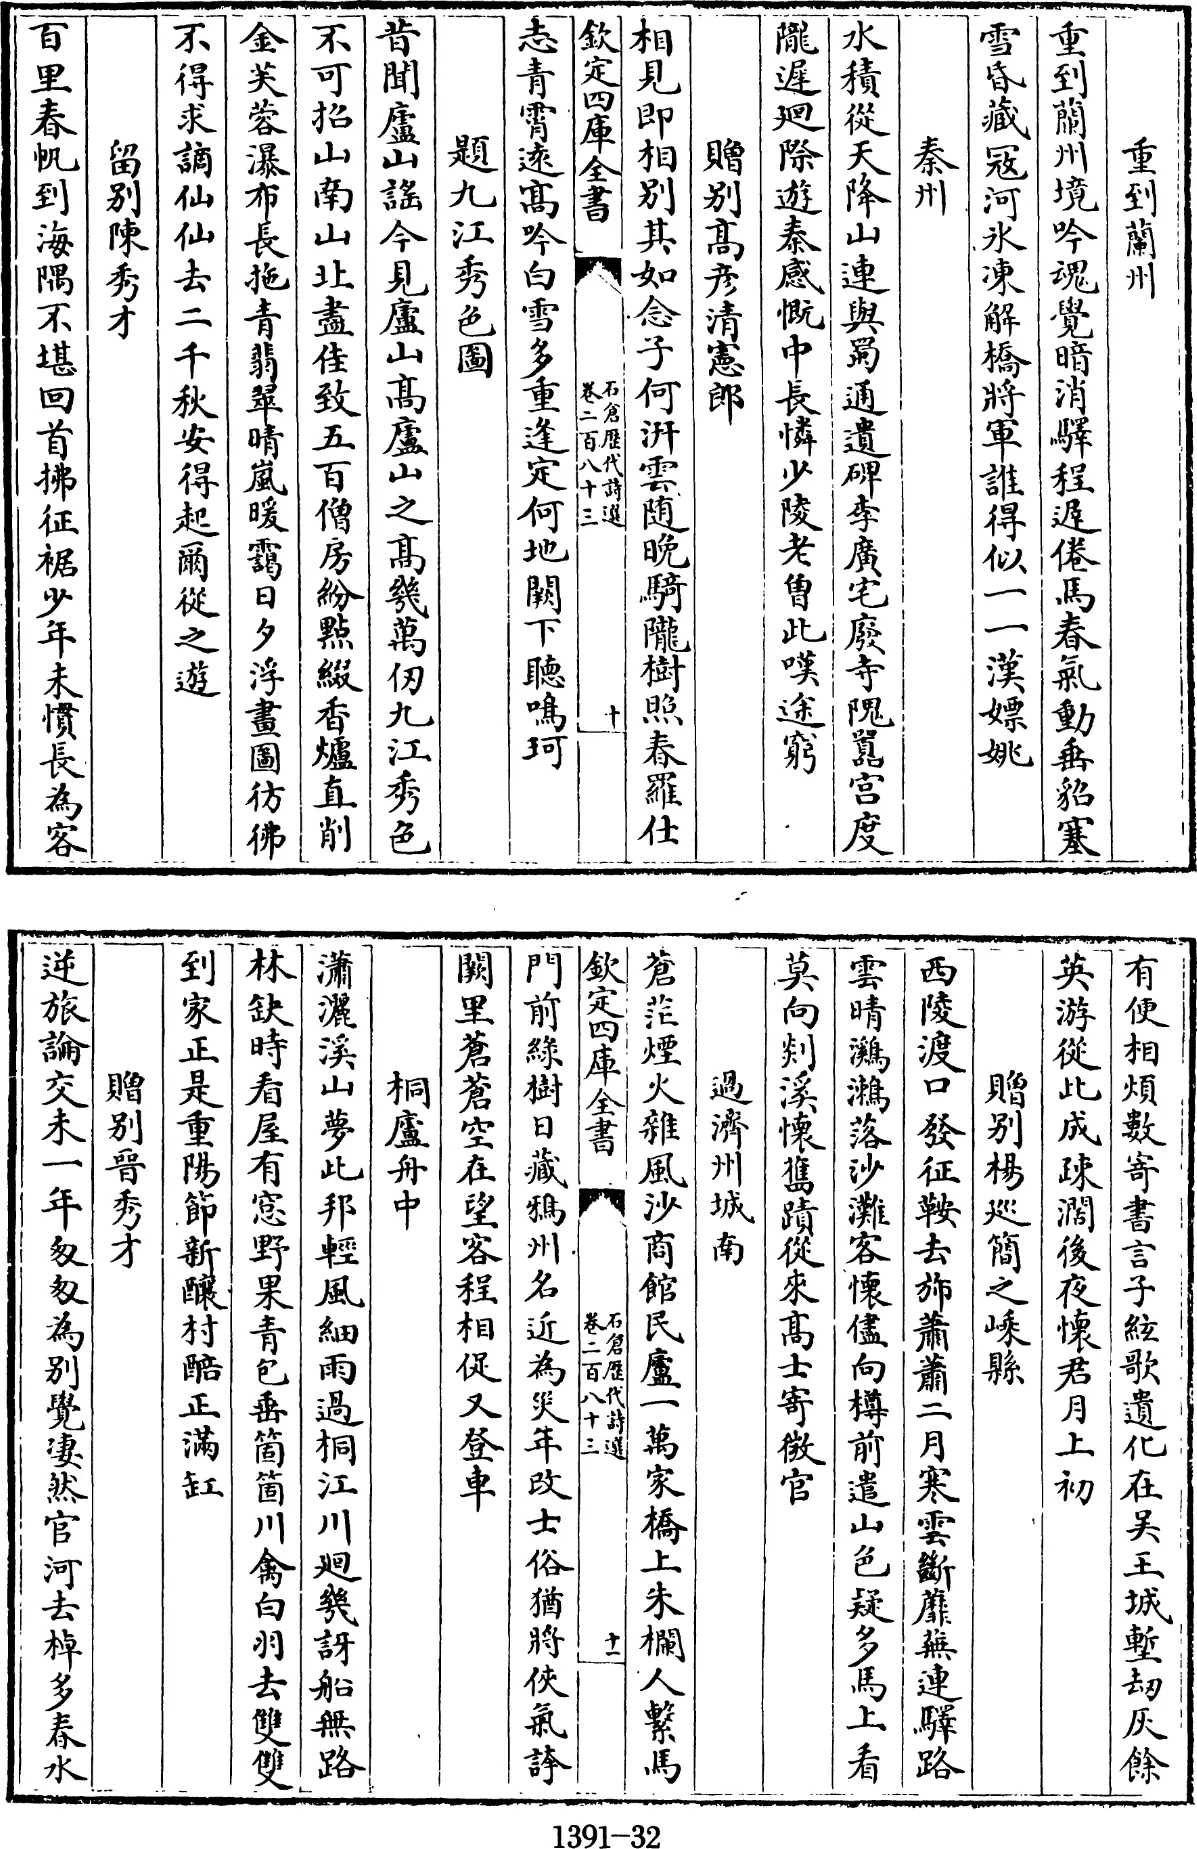 重到蘭州
重到蘭州境吟魂覺暗消驛程遲倦馬春氣動垂貂塞
雪昏藏冦河氷凍解橋將軍誰得似一一漢嫖姚
秦州
水積從天降山連與蜀通遺碑李廣宅廢寺隗囂宫度
隴遲廻際遊秦感慨中長憐少陵老曽此嘆途窮
贈别髙彦清憲郎
相見即相别其如念子何汧雲随晩騎隴樹照春羅仕
欽定四庫全書
石倉歴代詩選
卷二百八十三
十
志青霄逺髙吟白雪多重逢定何地闕下聽鳴珂
題九江秀色圖
昔聞廬山謡今見廬山髙廬山之髙幾萬仞九江秀色
不可招山南山北盡佳致五百僧房紛點綴香爐直削
金芙蓉瀑布長拖青翡翠晴嵐暖靄日夕浮畫圖彷彿
不得求謫仙仙去二千秋安得起爾從之遊
留别陳秀才
百里春帆到海隅不堪回首拂征裾少年未慣長為客
有便相煩數寄書言子絃歌遺化在吴王城塹刼灰餘
英游從此成疎濶後夜懐君月上初
贈别楊巡簡之嵊縣
西陵渡口發征鞍去斾蕭蕭二月寒雲斷蘼蕪連驛路
雲晴鸂鶒落沙灘客懐儘向樽前遣山色疑多馬上看
莫向剡溪懐舊蹟從來髙士寄微官
過濟州城南
蒼茫煙火雜風沙商館民廬一萬家橋上朱欄人繫馬
欽定四庫全書
石倉歴代詩選
卷二百八十三
十一
門前綠樹日藏鴉州名近為災年改士俗猶將俠氣誇
闕里蒼蒼空在望客程相促又登車
桐廬舟中
瀟灑溪山夢此邦輕風細雨過桐江川廻幾訝船無路
林缺時看屋有窓野果青包垂箇箇川禽白羽去雙雙
到家正是重陽節新釀村醅正滿缸
贈别晉秀才
逆旅論交未一年匆匆為别覺凄然官河去棹多春水
1391-32